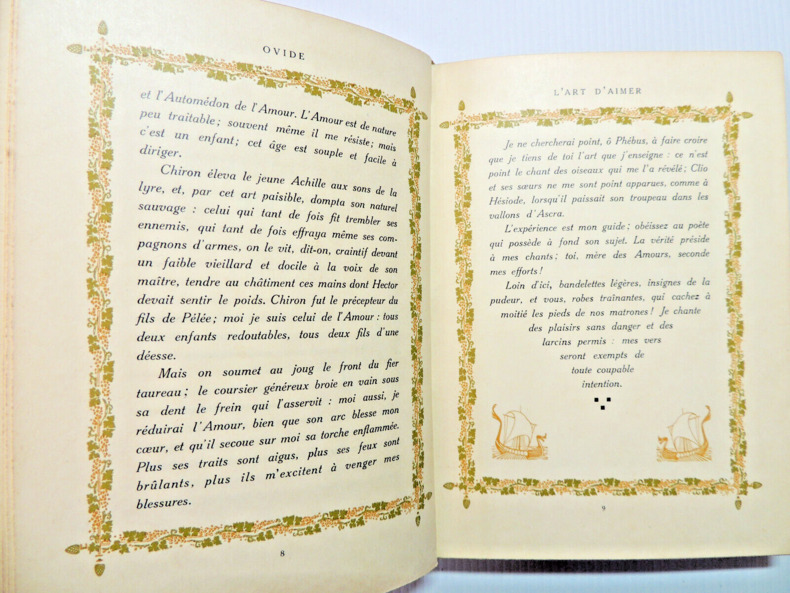 OVIDE
et l'Automédon de l'Amour. L'Amour est de nature
peu traitable; souvent même il me résiste; mais
c'est un enfant; cet âge est souple et facile à
diriger.
Chiron éleva le jeune Achille aux sons de la
lyre, et, par cet art paisible, dompta son naturel
sauvage : celui qui tant de fois fit trembler ses
ennemis, qui tant de fois effraya même ses com-
pagnons d'armes, on le vit, dit-on, craintif devant
un faible vieillard et docile à la voix de son
maître, tendre au châtiment ces mains dont Hector
devait sentir le poids. Chiron fut le précepteur du
fils de Pélée; moi je suis celui de l'Amour : tous
deux enfants redoutables, tous deux fils d'une
déesse.
Mais on soumet au joug le front du fier
taureau; le coursier généreux broie en vain sous
sa dent le frein qui l'asservit : moi aussi, je
réduirai l'Amour, bien que son arc blesse mon
cœur, et qu'il secoue sur moi sa torche enflammée.
Plus ses traits sont aigus, plus ses feux sont
brûlants, plus ils m'excitent à venger mes
blessures.
8
L'ART D'AIMER
Je ne chercherai point, ô Phébus, à faire croire
que je tiens de toi l'art que j'enseigne : ce n'est
point le chant des oiseaux qui me l'a révélé; Clio
et ses sœurs ne me sont point apparues, comme à
Hésiode, lorsqu'il paissait son troupeau dans les
vallons d'Ascra.
L'expérience est mon guide; obéissez au poète
qui possède à fond son sujet. La vérité préside
à mes chants; toi, mère des Amours, seconde
mes efforts!
Loin d'ici, bandelettes légères, insignes de la
pudeur, et vous, robes traînantes, qui cachez à
moitié les pieds de nos matrones! Je chante
des plaisirs sans danger et des
larcins permis : mes vers
seront exempts de
toute coupable
intention.
9